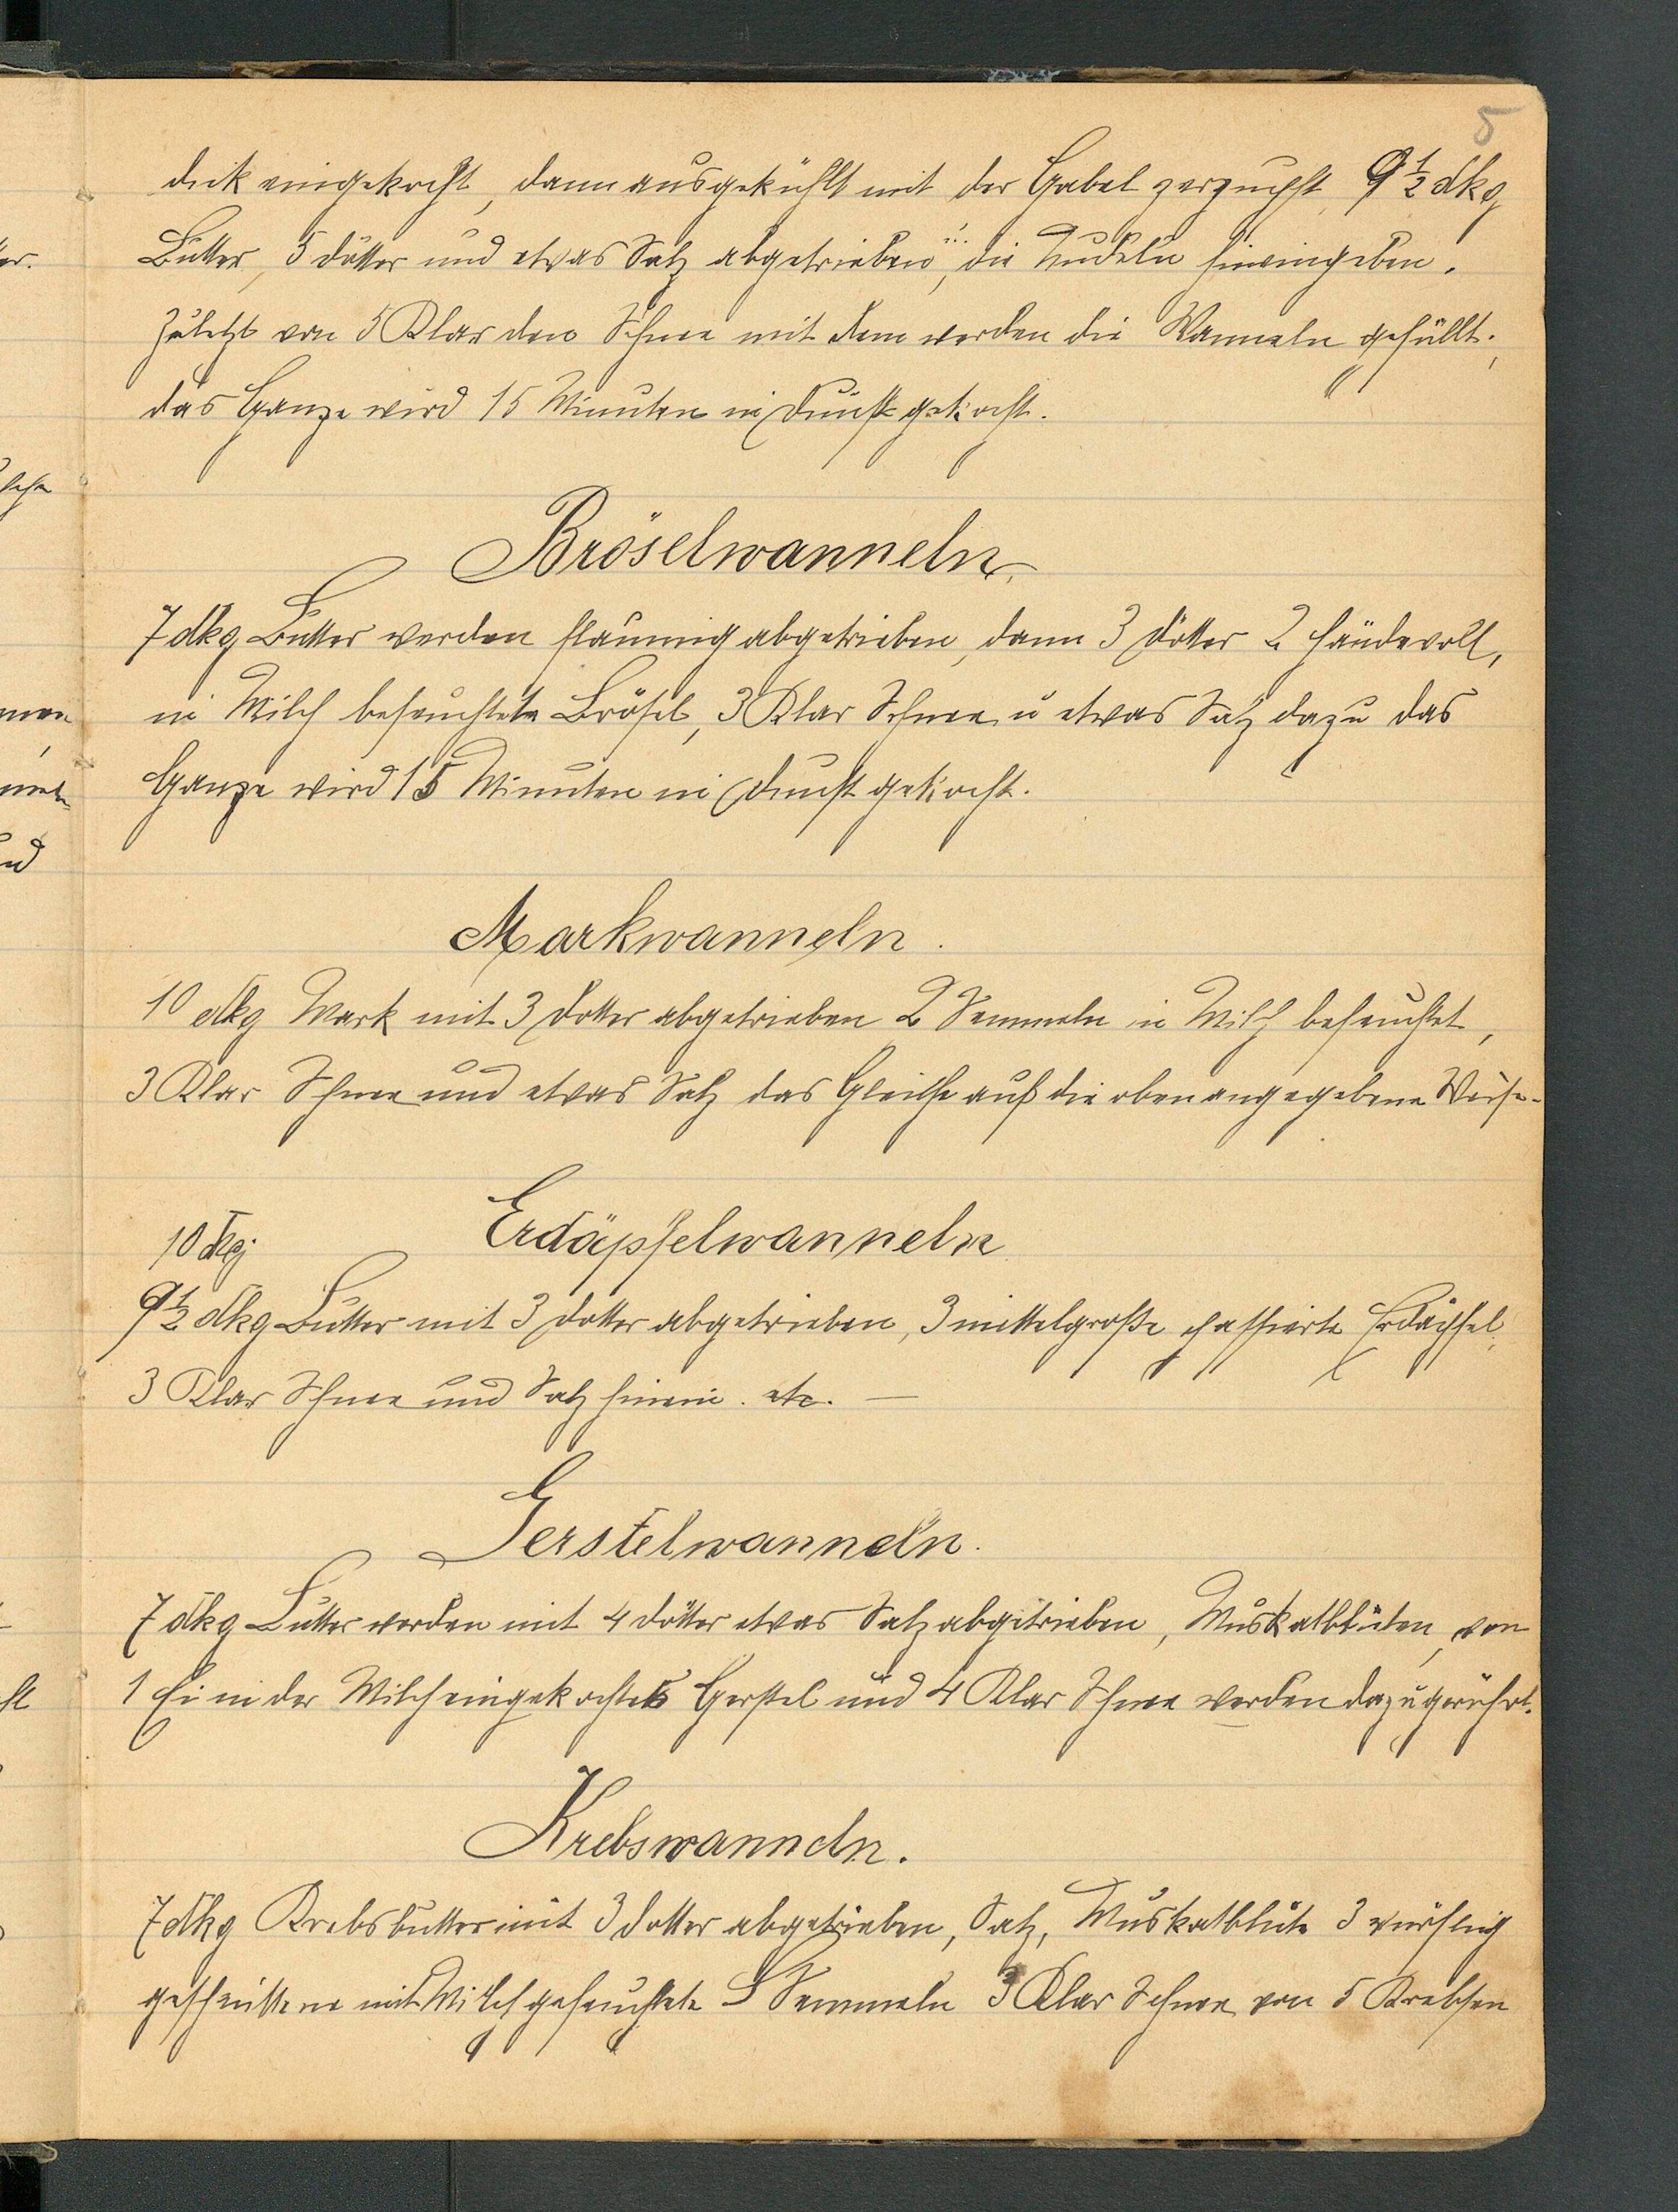 5
dick eingekocht, dann ausgekühlt mit der Gabel zerzupft, 9 1/2 dkg
Butter, 5 Dotter und etwas Salz abgetrieben, die Nudeln hineingeben.
Zuletzt von 5 Klar den Schnee mit dem werden die Wanneln gefüllt;
das Ganze wird 15 Minuten in Dunst gekocht.
Bröselwanneln.
7 dkg Butter werden flaumig abgetrieben, dann 3 Dotter 2 Händevoll,
in Milch befeuchtete Brösel, 3 Klar Schnee u etwas Salz dazu das
Ganze wird 15 Minuten in Dunst gekocht.
Markwanneln.
10 dkg Mark mit 3 Dotter abgetrieben 2 Semmeln in Milch befeuchtet,
3 Klar Schnee und etwas Salz das Gleiche auf die oben angegebene Weise.
Erdäpfelwanneln
10 dkg
9 1/2 dkg Butter mit 3 Dotter abgetrieben, 3 mittelgroße passierte Erdäpfel,
3 Klar Schnee und Salz hinein. etc. —
Gerstelwanneln.
7 dkg Butter werden mit 4 Dötter etwas Salz abgetrieben, Muskatblüten, von
1 Ei in der Milch eingekochtes Gerstel und 4 Klar Schnee werden dazugerührt.
Krebswanneln.
7 dkg Krebsbutter mit 3 Dotter abgetrieben, Salz, Muskatblüte 3 würflig
geschnittene mit Milch gefeuchtete Semmeln 3 Klar Schnee von 5 Krebsen